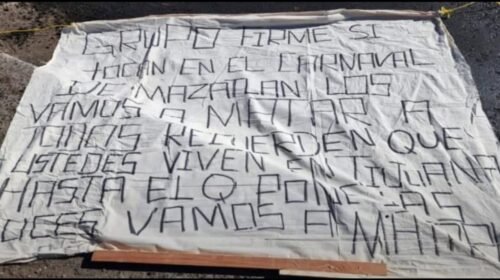 GRUPO FIRME SI
TOCAN EN EL CARNAVAL
DE MAZATLAN LOS
VAMOS A MATAR A
RECUERDEN QUE
USTEDES VIVEN EN TIJUANA
HASTA EL Q PONE LAS
VAMOS A